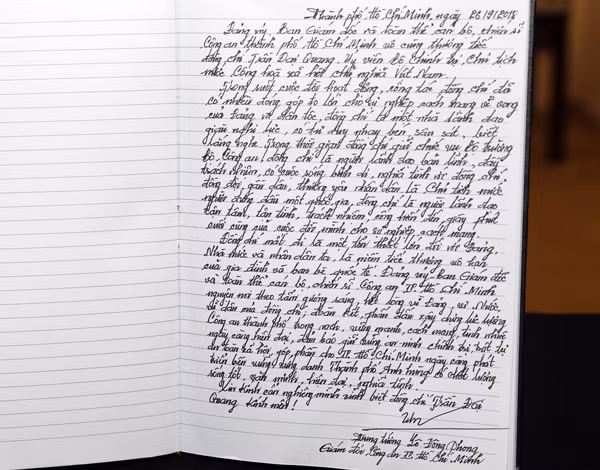 Thành phố Hồ Chí Minh, ngày 26/9/2018
Đảng ủy, Ban Giám đốc và toàn thể cán bộ, chiến sĩ
Công an thành phố Hồ Chí Minh vô cùng thương tiếc
đồng chí Trần Đại Quang, Ủy viên Bộ Chính trị, Chủ tịch
nước Cộng hòa xã hội chủ nghĩa Việt Nam.
Trong suốt cuộc đời hoạt động, công tác đồng chí đã
có nhiều đóng góp to lớn cho sự nghiệp cách mạng vẻ vang
của Đảng và dân tộc, đồng chí là một nhà lãnh đạo
giàu nghị lực, có tư duy nhạy bén, sâu sát, biết
lắng nghe. Trong thời gian đồng chí giữ chức vụ Bộ trưởng
Bộ Công an đồng chí là người lãnh đạo bản lĩnh, đầy
trách nhiệm, có cuộc sống bình dị, nghĩa tình với đồng chí,
đồng đội, gần dân, thương yêu nhân dân. Là Chủ tịch nước
người đứng đầu một quốc gia, đồng chí là người lãnh đạo
tận tâm, tận tình, trách nhiệm, cống hiến đến giây phút
cuối cùng của cuộc đời mình cho sự nghiệp cách mạng.
Đồng chí mất đi là một tổn thất lớn đối với Đảng,
Nhà nước và nhân dân ta, là niềm tiếc thương vô hạn
của gia đình và bạn bè quốc tế. Đảng ủy, Ban Giám đốc
và toàn thể cán bộ, chiến sĩ Công an TP. Hồ Chí Minh
nguyện noi theo tấm gương sáng, hết lòng vì Đảng, vì Nước,
vì dân mà đồng chí, đoàn kết, phấn đấu xây dựng lực lượng
Công an thành phố trong sạch, vững mạnh, cách mạng, tinh nhuệ
ngày càng hiện đại, đảm bảo giữ vững an ninh chính trị, trật tự
an toàn xã hội, góp phần cho TP. Hồ Chí Minh ngày càng phát
triển bền vững xứng danh Thành phố Anh hùng có chất lượng
sống tốt, văn minh, hiện đại, nghĩa tình.
Xin kính cẩn nghiêng mình vĩnh biệt đồng chí Trần Đại
Quang kính mến!
Trung tướng Lê Đông Phong
Giám đốc Công an TP. Hồ Chí Minh